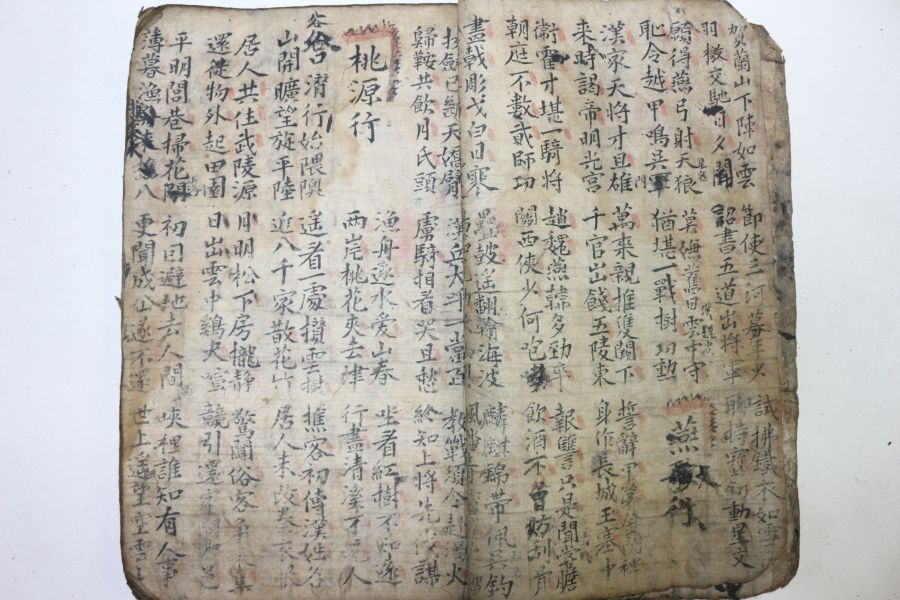 賀蘭山下陣如雲
羽檄交馳日夕聞
節使三河募年少
詔書五道出將軍
試拂鐵衣如雪
持寶劍動星文
願得燕弓射天狼
恥令越甲鳴吳軍
莫嫌舊日雲中守
猶堪一戰樹功勳
燕支行
漢家天將才且雄
來時謁帝明光宮
萬乘親推雙闕下
千官出餞五陵東
誓辭甲第金門裡
身作長城玉塞中
衛霍才堪一騎將
朝庭不數貳師功
趙魏燕韓多勁卒
關西俠少何咆勃
報讐只是聞嘗膽
飲酒不曾妨刮骨
畫戟彫戈白日寒
疊鼓遙翻瀚海波
麒麟錦帶佩吳鈎
拔劍已斷天嬌臂
歸鞍共飲月氏頭
漢兵大呼一當百
虜騎相看哭且愁
教戰須令赴湯火
終知上將先伐謀
桃源行
漁舟逐水愛山春
兩岸桃花夾去津
坐看紅樹不知遠
行盡清溪不見人
山口潛行始隈隩
山開曠望旋平陸
遙看一處攢雲樹
近入千家散花竹
樵客初傳漢姓名
居人未改秦衣服
居人共住武陵源
還從物外起田園
月明松下房櫳靜
日出雲中鷄犬喧
驚聞俗客爭來集
競引還家問都邑
平明閭巷掃花開
薄暮漁樵乘水入
初因避地去人間
更聞成仙遂不還
峽裡誰知有人事
世上遙望空雲山